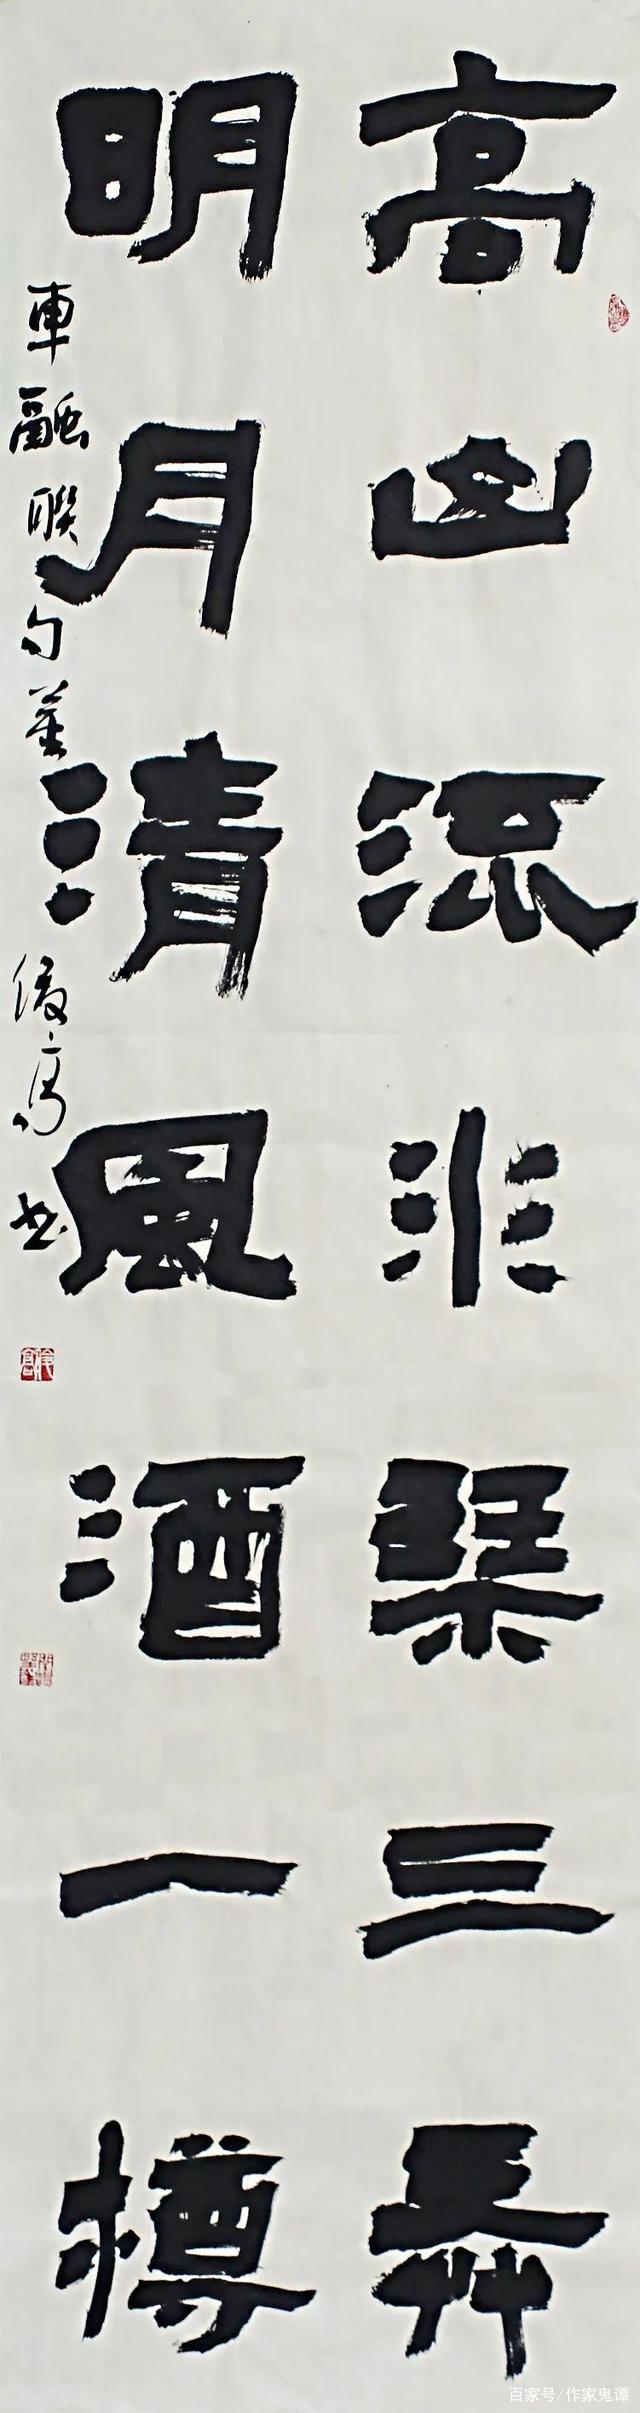 高山流水琴三弄
明月清風酒一樽
車融聯句 書
百家号/作家鬼谭